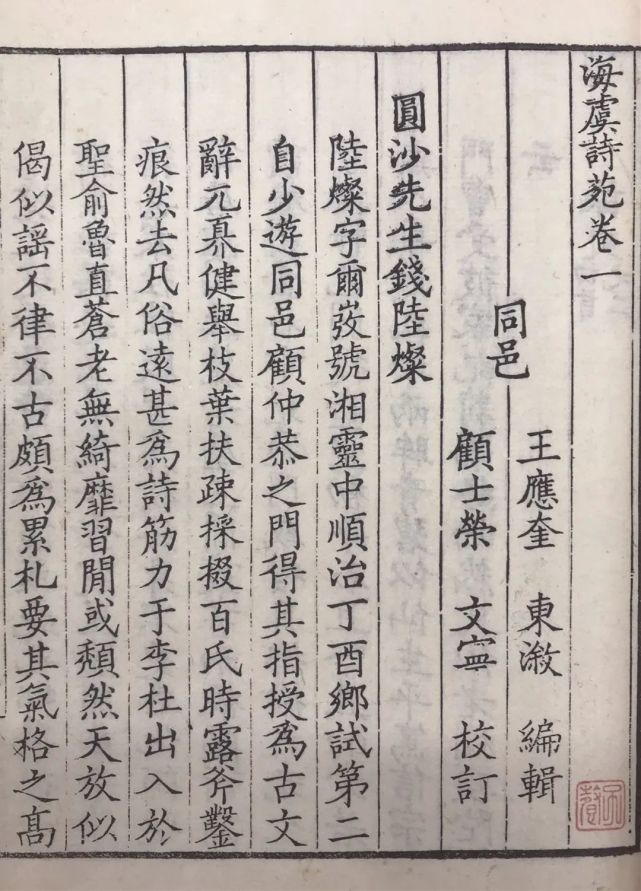 海虞詩苑卷一
同邑
王應奎 東漵 編輯
顧士榮 文寧 校訂
圓沙先生錢陸燦
陸燦字爾弢號湘靈中順治丁酉鄉試第二
自少遊同邑顧仲恭之門得其指授為古文
辭元奡健舉枝葉扶疎採掇百氏時露斧鑿
痕然去凡俗遠甚為詩筋力于李杜出入於
聖俞魯直蒼老無綺靡習閒或頽然天放似
偈似謡不律不古頗為累札要其氣格之高